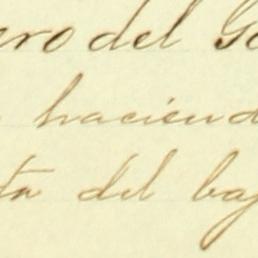 ro del Go
haciend
ta del baj